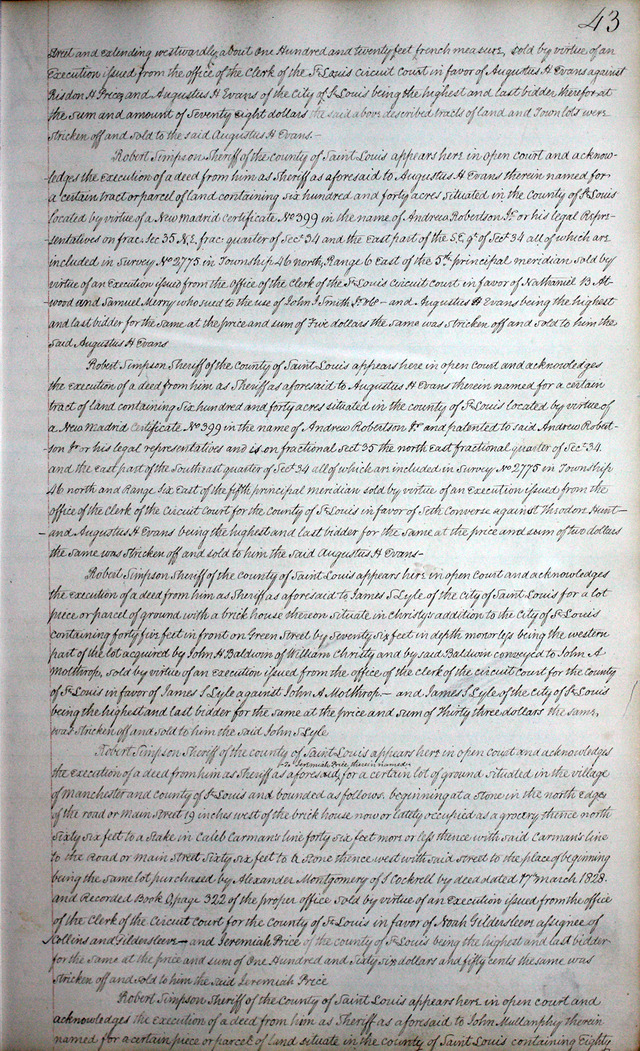 43
Street and extending westwardly about One Hundred and twenty feet french measure, sold by virtue of an
Execution issued from the office of the Clerk of the St Louis circuit court in favor of Augustus H Evans against
Risdon H Price, and Augustus H Evans of the City of St Louis being the highest and last bidder therefor at
the sum and amount of Seventy Eight dollars the said above described tracts of land and Town lots were
Stricken off and sold to the said Augustus H Evans.-
Robert Simpson Sheriff of the county of Saint Louis appears here in open court and acknow-
-ledges the Execution of a deed from him as Sheriff as aforesaid to Augustus H Evans therein named for
a certain tract or parcel of land containing six hundred and forty acres situated in the County of St Louis
located by virtue of a New Madrid certificate No 399 in the name of Andrew Robertson Sr or his legal Repre-
-sentatives on frac: Sec 35 N.E. frac: quarter of Sect 34 and the East part of the S.E. qr of Sect 34 all of which are
included in Survey No 2775 in Township 46 north, Range 6 East of the 5th principal meridian sold by
virtue of an Execution issued from the Office of the Clerk of the St Louis Circuit Court in favor of Nathaniel B At-
-wood and Samuel Merry who sued to the use of John J Smith Sr &c - and Augustus H Evans being the highest
and last bidder for the same at the price and sum of Five dollars the same was stricken off and sold to him the
said Augustus H Evans
Robert Simpson Sheriff of the County of Saint Louis appears here in open court and acknowledges
the execution of a deed from him as Sheriff as aforesaid to Augustus H Evans therein named for a certain
tract of land containing Six hundred and forty acres situated in the county of St Louis located by virtue of
a New Madrid Certificate No 399 in the name of Andrew Robertson Sr and patented to said Andrew Robert-
-son Sr or his legal representatives and is on fractional Sect 35 the north East fractional quarter of Sect 34
and the East part of the Southeast quarter of Sect 34 all of which are included in Survey No 2775 in Township
46 north and Range Six East of the fifth principal meridian sold by virtue of an Execution issued from the
office of the Clerk of the Circuit Court for the County of St Louis in favor of Seth Converse against Theodore Hunt-
- and Augustus H Evans being the highest and last bidder for the same at the price and sum of two dollars
the same was stricken off and sold to him the said Augustus H Evans-
Robert Simpson Sheriff of the County of Saint Louis appears here in open Court and acknowledges
the execution of a deed from him as Sheriff as aforesaid to James S Lyle of the City of Saint Louis for a lot
piece or parcel of ground with a brick house thereon situate in Christy's addition to the City of St Louis
containing forty five feet in front on Green Street by Seventy Six feet in depth more or less being the western
part of the lot acquired by John H Baldwin of William Christy and by said Baldwin conveyed to John A
Mothrop, sold by virtue of an execution issued from the office of the clerk of the circuit court for the county
of St Louis in favor of James S Lyle against John A. Mothrop - and James S Lyle of the city of St Louis
being the highest and last bidder for the same at the price and sum of Thirty three dollars the same
was stricken off and sold to him the said John S Lyle
Robert Simpson Sheriff of the county of Saint Louis appears here in open court and acknowledges
to Jeremiah Price therein named
the execution of a deed from him as Sheriff as aforesaid, for a certain lot of ground situated in the village
of Manchester and county of St Louis and bounded as follows, beginning at a Stone in the north Edges
of the road or Main Street 19 inches west of the brick house now or lately occupied as a grocery, thence north
Sixty Six feet to a Stake in Caleb Carman's line forty six feet more or less thence with said Carman's line
to the Road or Main Street Sixty Six feet to a Stone thence west with said Street to the place of beginning
being the same lot purchased by Alexander Montgomery of J Cockrell by deed dated 17th March 1828
and Recorded Book O, page 322 of the proper office sold by virtue of an Execution issued from the office
of the Clerk of the Circuit Court for the County of St Louis in favor of Noah Gildersleeve assignee of
Collins and Gildersleeve - and Jeremiah Price of the county of St Louis being the highest and last bidder
for the same at the price and sum of One Hundred and Sixty six dollars and fifty cents the same was
Stricken off and sold to him the said Jeremiah Price
Robert Simpson Sheriff of the County of Saint Louis appears here in open Court and
acknowledges the Execution of a deed from him as Sheriff as aforesaid to John Mullanphy therein
named for a certain piece or parcel of land situate in the county of Saint Louis containing Eighty